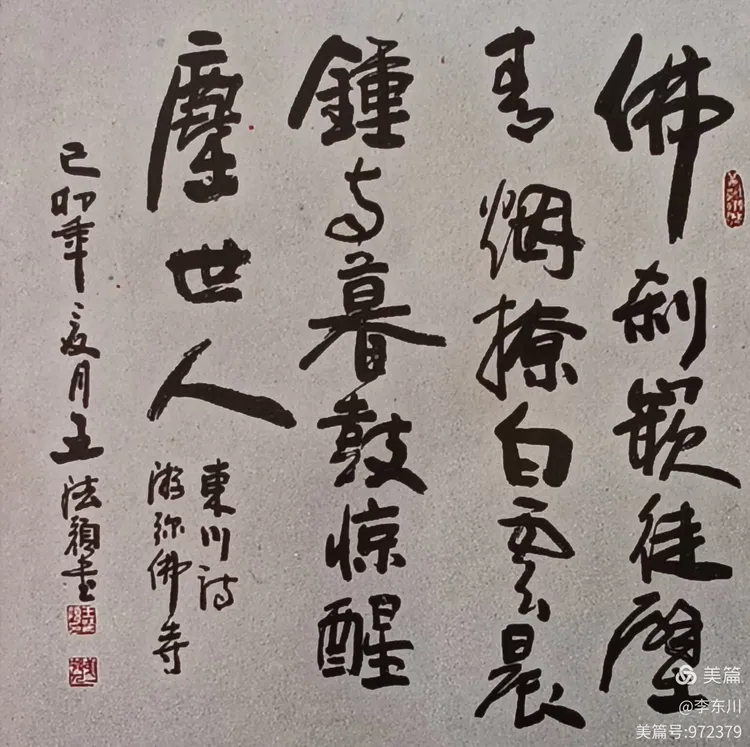 佛刹嵌徒壁
青烟撩白雲晨
鍾与暮鼓惊醒
塵世人
東川诗
游弥佛寺
己卯年夏月王法颖书
美篇
@李东川
美篇号:972379